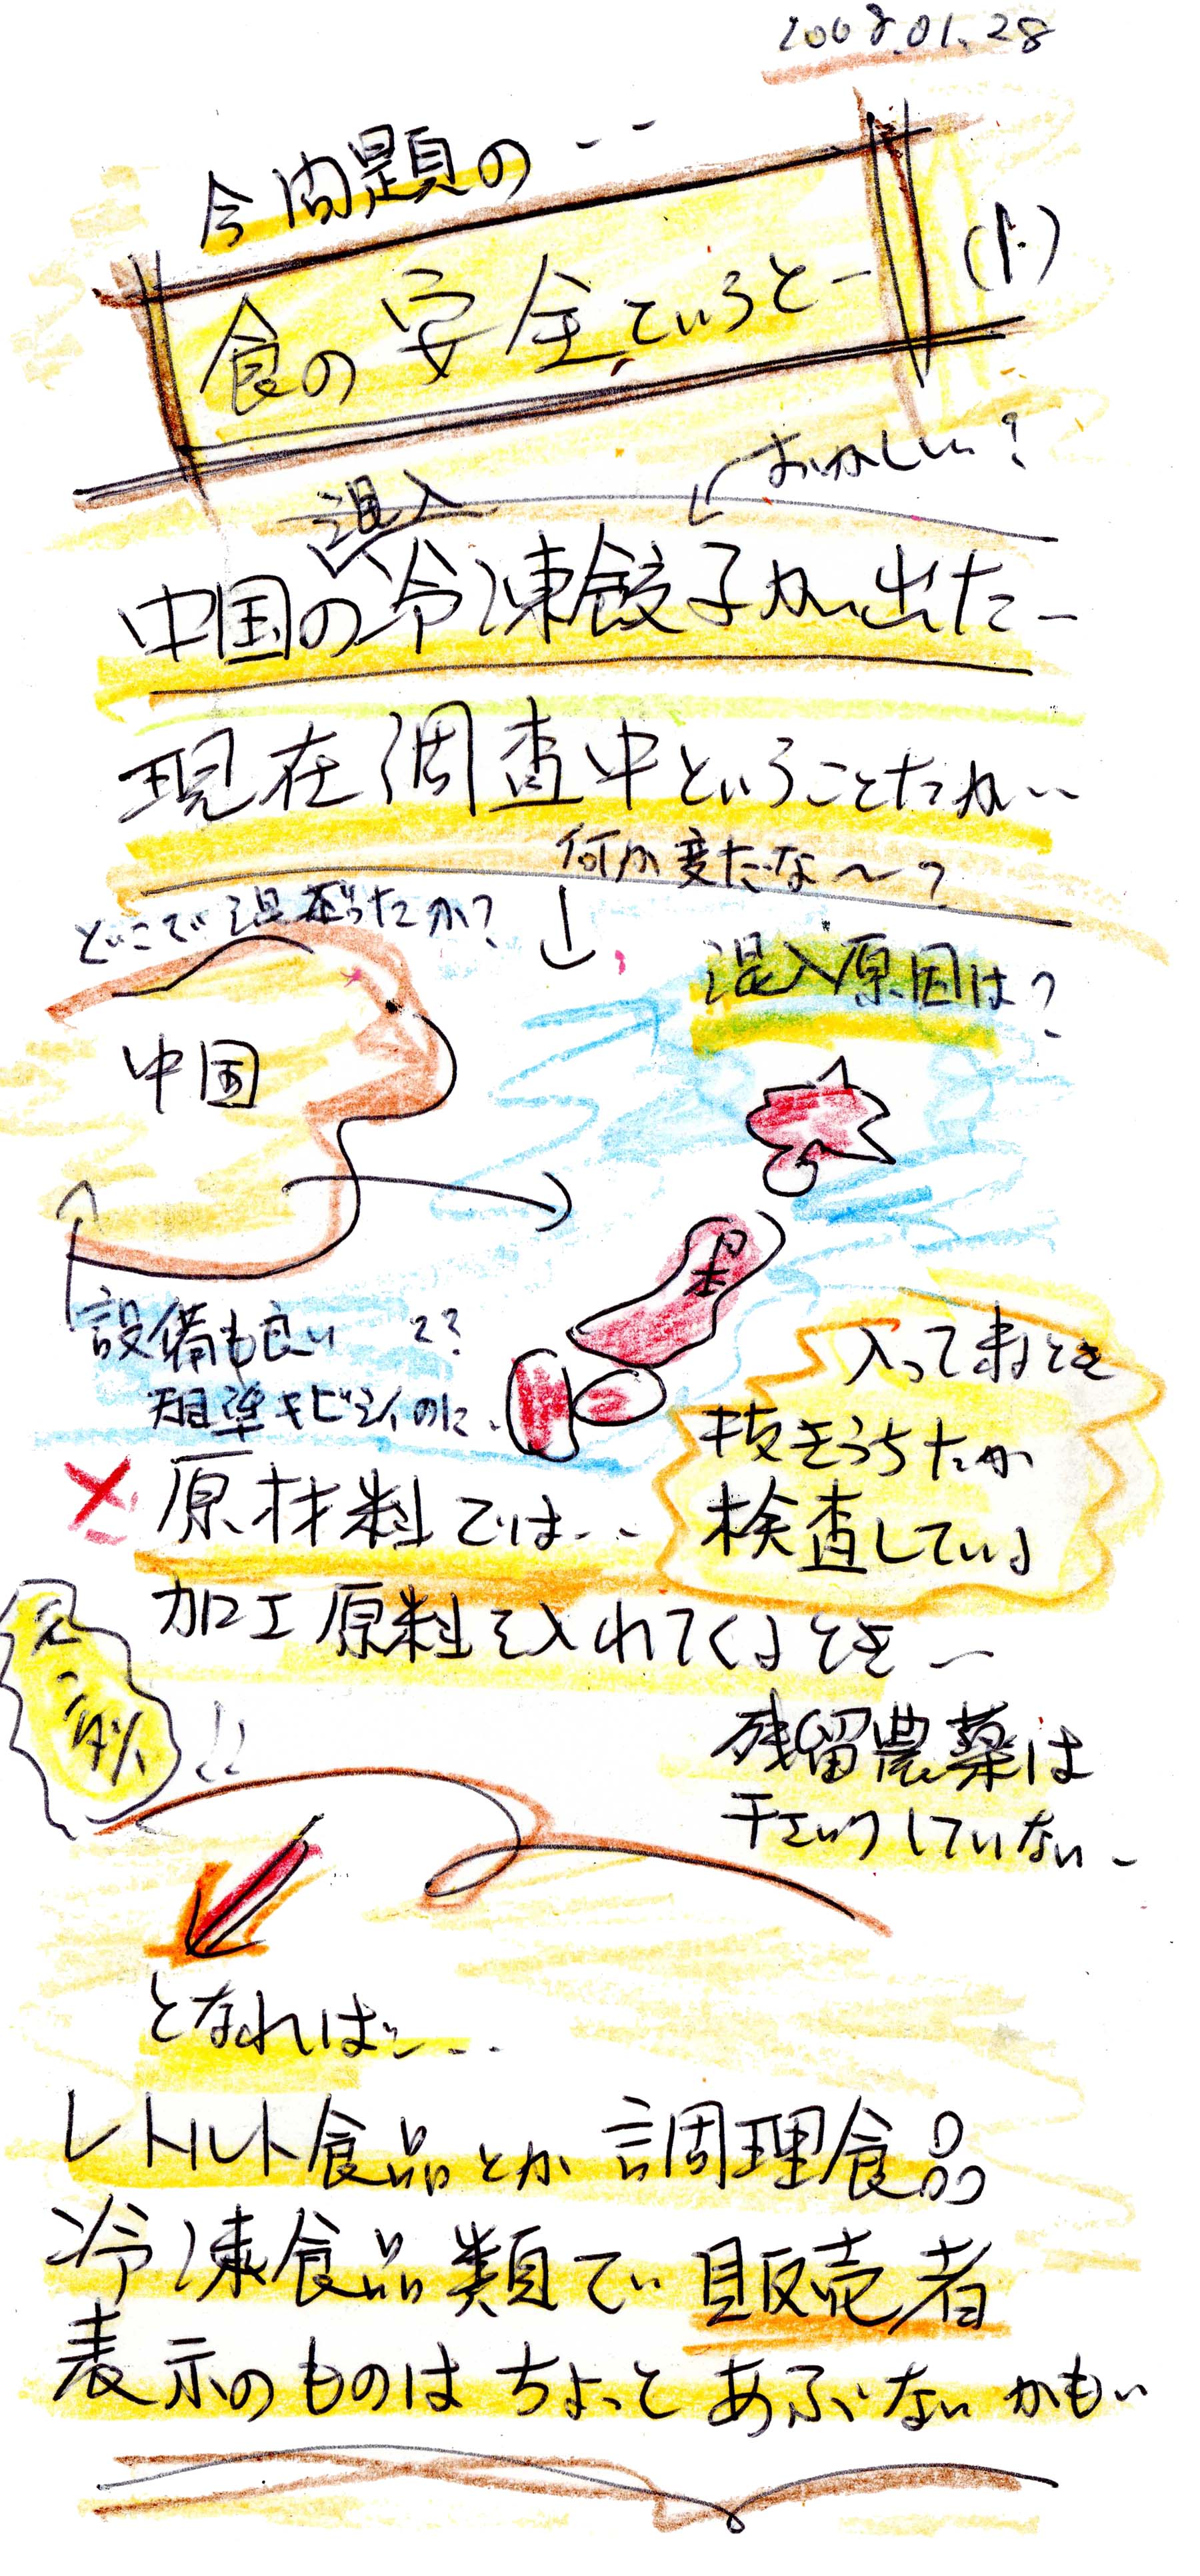 2008.01.28
今問題の--
食の安全でいうと-
おかしい?
混入
中国の冷凍餃子が出た-
現在調査中ということだが--
何か変だな〜?
どこで混ざったか?
混入原因は?
中国
日本
設備も良い ??
基準キビシイのに.
入って来るとき
抜きうちだが
検査している
× 原材料では--
加工原料を入れてくるとき-
残留農薬は
チェックしていない-
となれば---
レトルト食品とか調理食品
冷凍食品類で販売者
表示のものはちょっとあぶないかも--